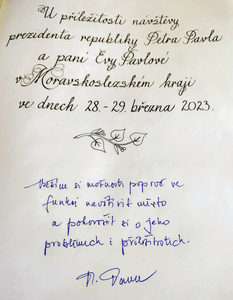 U příležitosti návštěvy
prezidenta republiky Petra Pavla
a paní Evy Pavlové
v Moravskoslezském kraji
ve dnech 28.-29. března 2023.
si možnosti poprvé ve
funkci navštívit místo
a pohovořit si o jeho
problémech i příležitostech.
P. Pavel